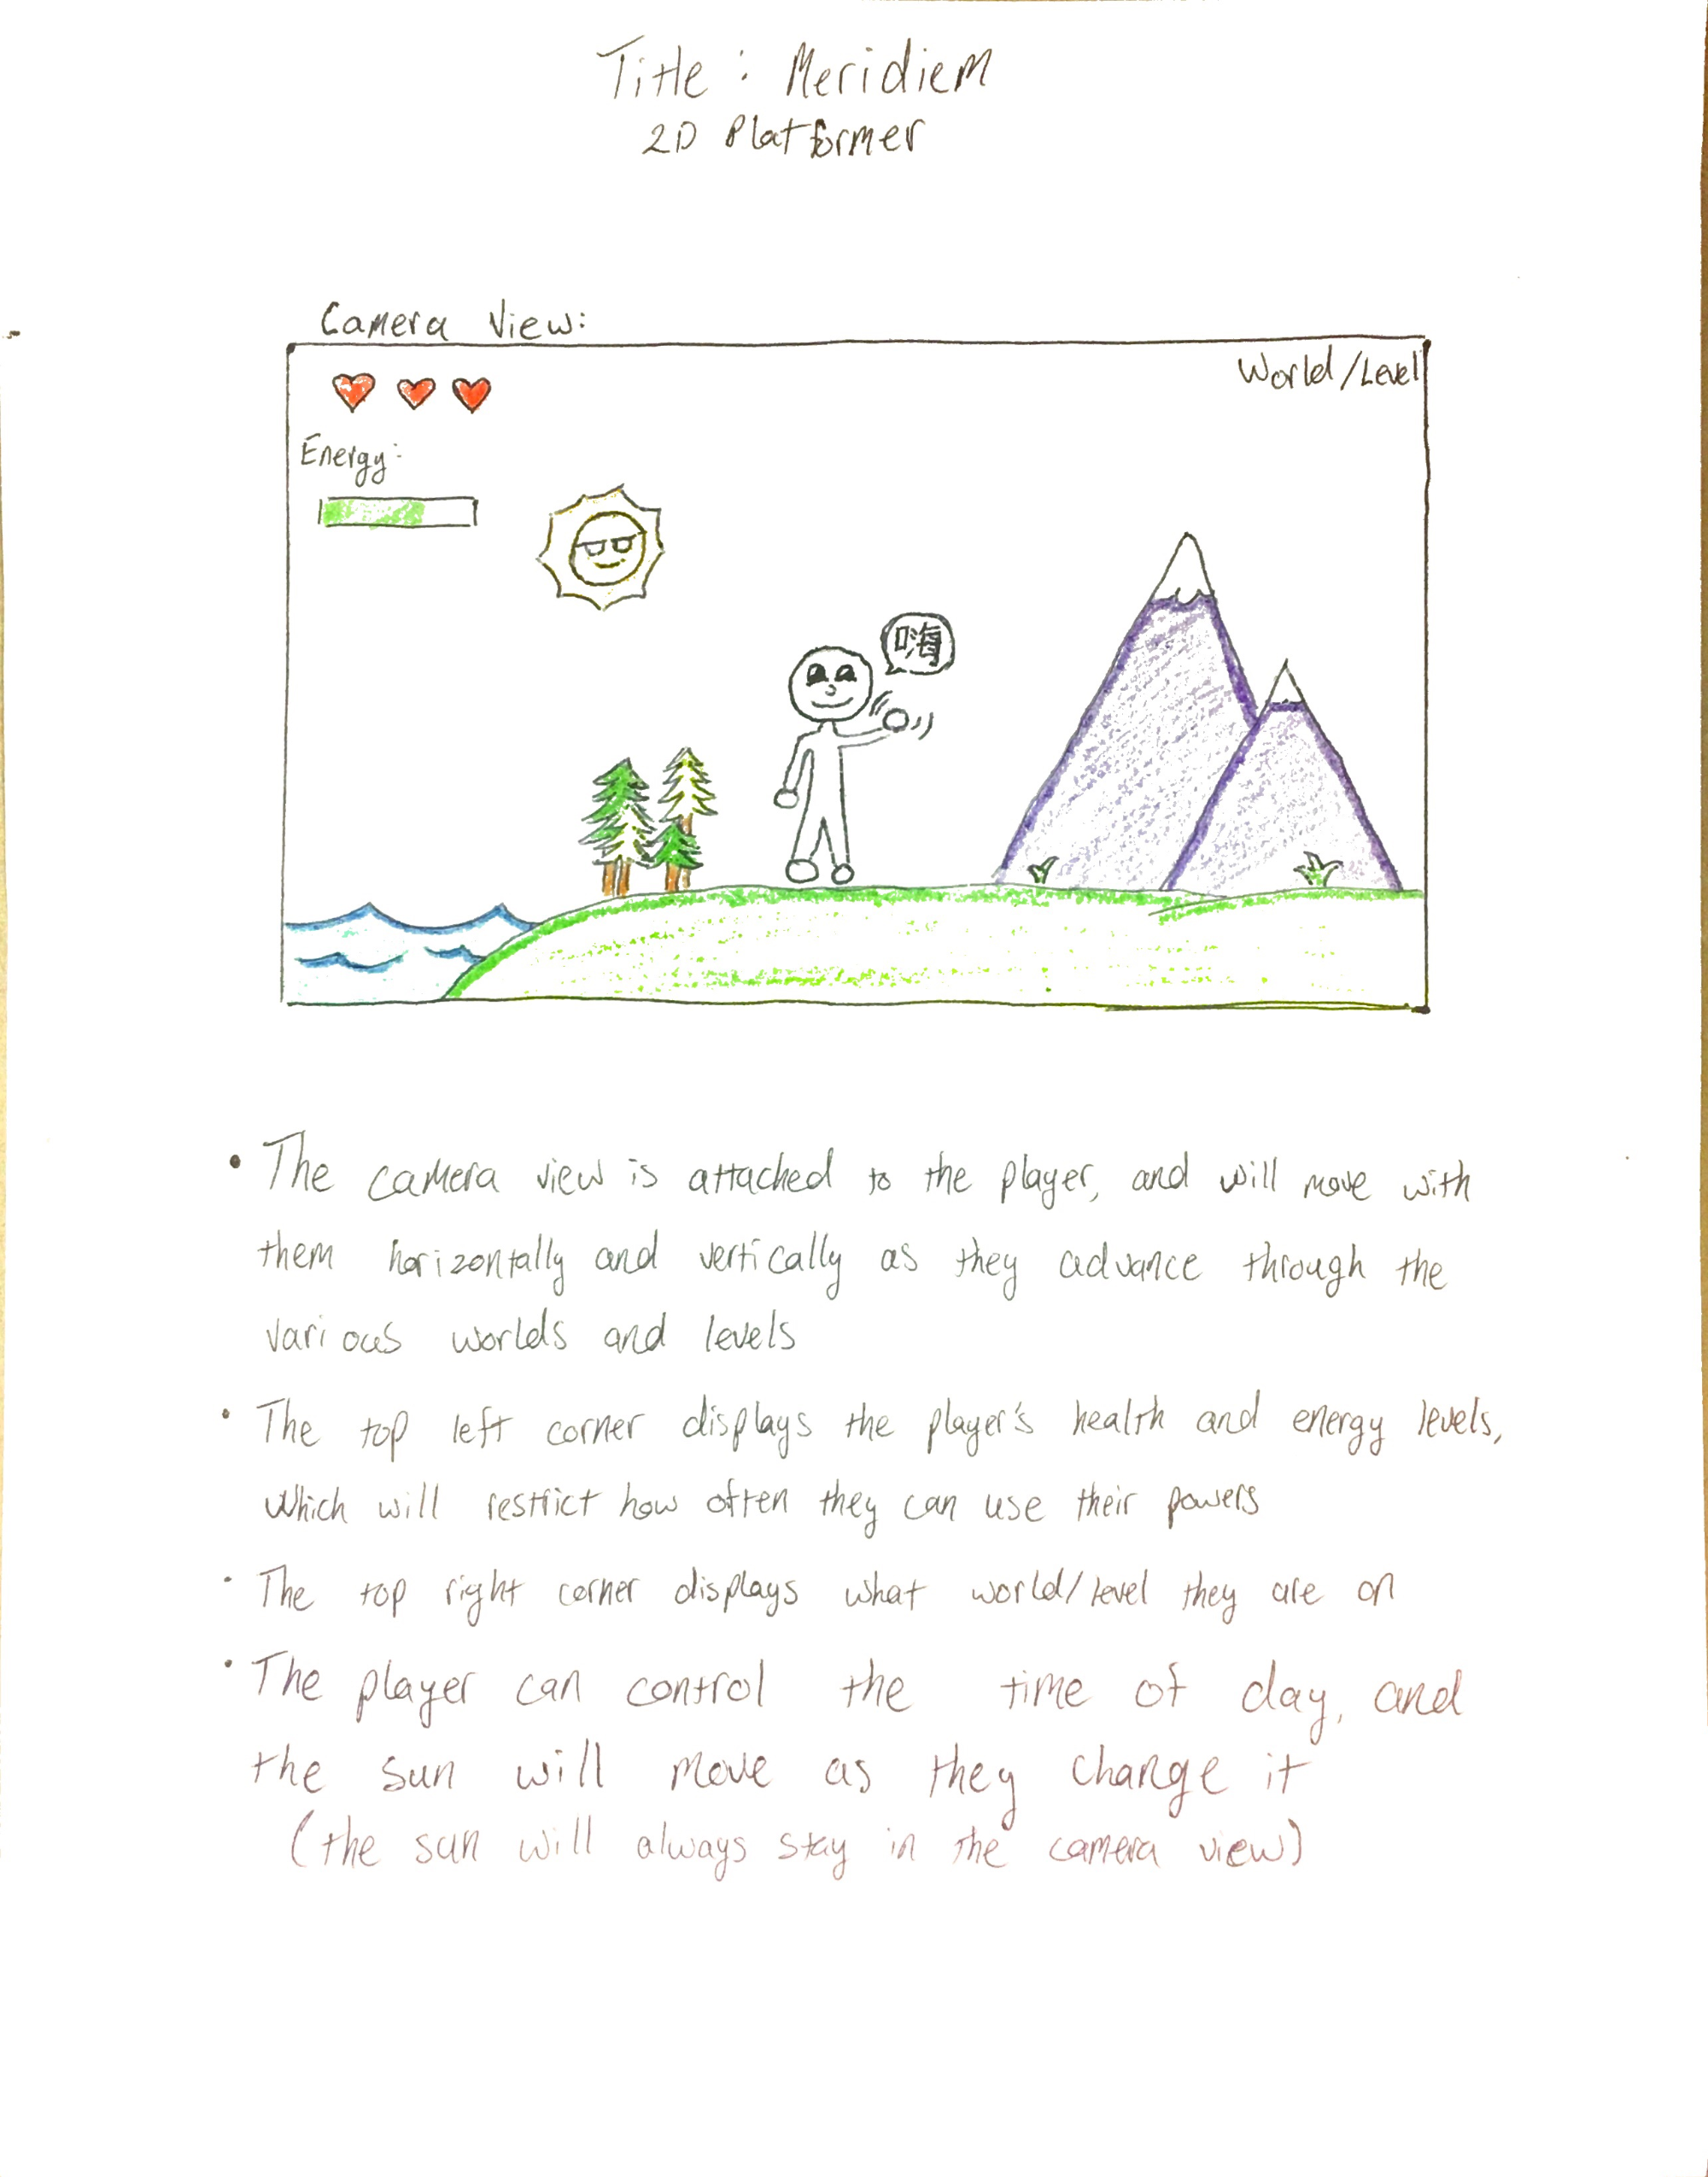 Title: Meridiem
2D Platformer
Camera View:
World/Level
Energy:
嗨
• The camera view is attached to the player, and will move with
them horizontally and vertically as they advance through the
various worlds and levels
• The top left corner displays the player's health and energy levels,
which will restrict how often they can use their powers
• The top right corner displays what world/level they are on
• The player can control the time of day, and
the sun will move as they change it
(the sun will always stay in the camera view)